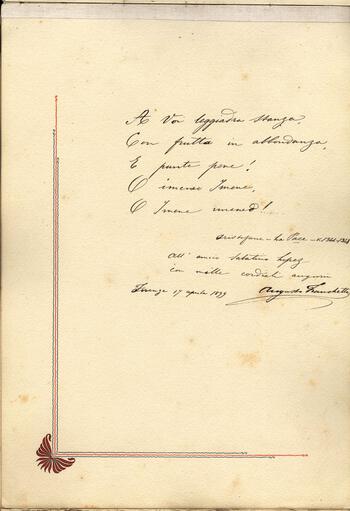 A Voi leggiadra stanza,
Con frutta in abbondanza,
E punte pene!
O imeneo Imene,
O Imene imeneo!
Aristofane - La Pace -
All' amico Sabatino Lopez
con mille cordiali auguri
Firenze 17 aprile 1899 Augusto Franchetti